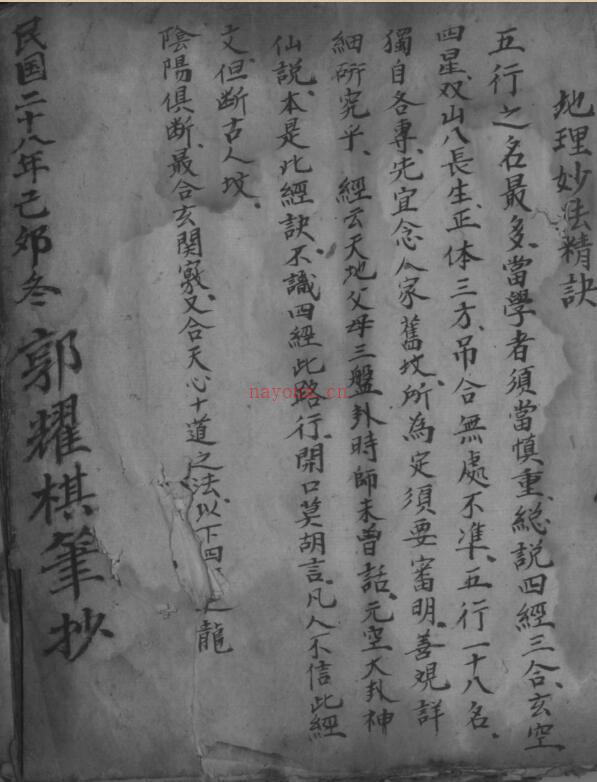 地理妙法精訣
五行之名最多、當學者須當慎重、總說四經三合、玄空
四星、双山八長生、正体三方、吊合無處不準、五行一十八名、
獨自各專、先宜念人家舊坟、所為定須要審明、善观詳
細研究乎、經云天地父母三盤卦時師未曾話、元空大卦神
仙說、本是此經訣、不識四經此路行、開口莫胡言、凡人不信此經
文、但断古人坟、
陰陽俱断、最合玄関竅、又合天心十道之法、以下四之龍
民国二十八年己夘冬
郭耀棋筆抄
nayona.cn